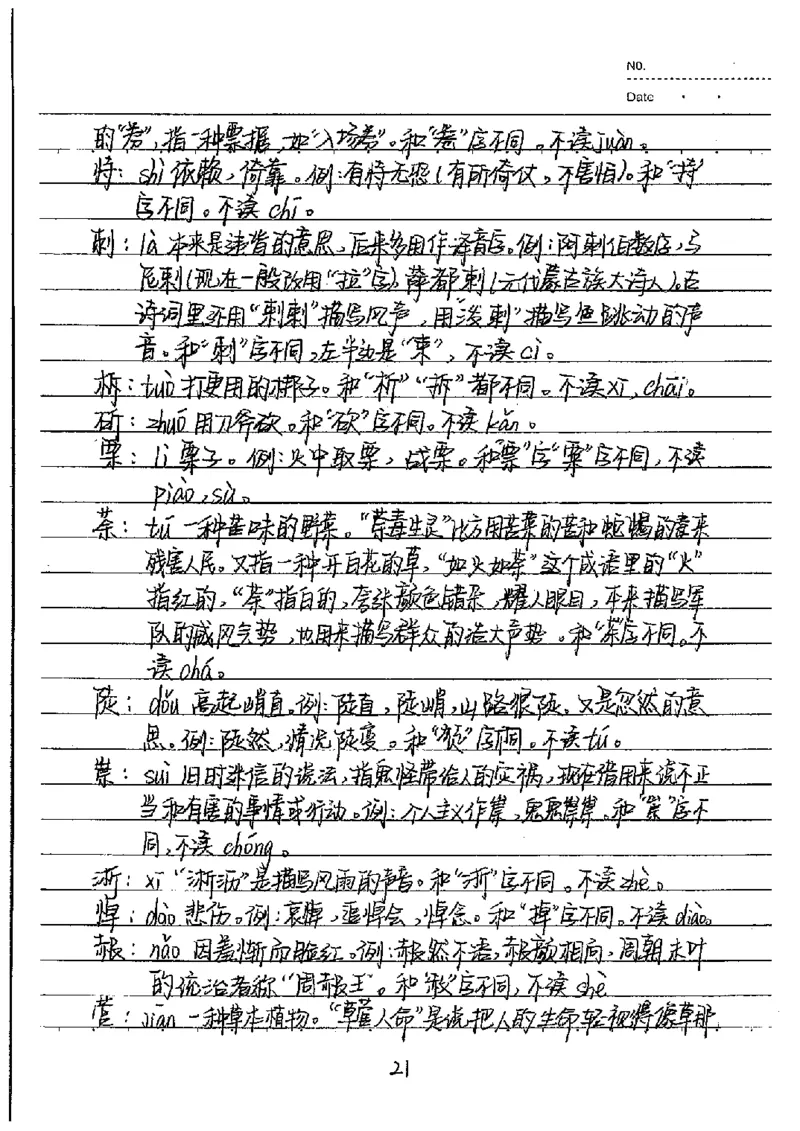 No.
Date
的“券”,指一种票据,如“入场券”。和“卷”字不同。不读juàn。
恃:shì 依赖,倚靠。例:有恃无恐(有所倚仗,不害怕)。和“持”
字不同。不读 chí。
剌:là 本来是违背的意思,后来多用作译音字。例:阿剌伯数字,马
尼剌(现在一般改用“拉”字)萨都剌(元代蒙古族大诗人)。古
诗词里还用“剌剌”描写风声,用“泼剌”描写鱼跳动的声
音。和“刺”字不同,左半边是“束”,不读cì。
柝:tuò 打更用的梆子。和“析”“拆”都不同。不读xī,chāi。
斫:zhuó 用刀斧砍。和“砍”字不同。不读kǎn。
栗:lì 栗子。例:火中取栗,战栗。和“票”字“粟”字不同,不读
piào,sù。
荼:tú 一种苦味的野菜。“荼毒生灵”比方用苦菜的苦和蛇蝎的毒来
残害人民。又指一种开白花的草,“如火如荼”这个成语里的“火”
指红的,“荼”指白的,
颜色错杂,耀人眼目,本来描写军
队的威风气势,也用来描写群众的浩大声势。和“茶”字不同。不
读chá。
陡:dǒu 高起峭直。例:陡直,陡峭,山路很陡。又是忽然的意
思。例:陡然,情况陡变。和“徒”字不同。不读tú。
祟:suì 旧时迷信的说法,指鬼怪带给人的灾祸,现在借用来说不正
当和有害的事情或行动。例:个人主义作祟,鬼鬼祟祟。和“崇”字不
同,不读 chóng。
淅:xī “淅沥”是描写风雨的声音。和“浙”字不同。不读zhè。
悼:dào 悲伤。例:哀悼,追悼会,悼念。和“掉”字不同。不读diào。
赧:nǎn 因羞惭而脸红。例:赧然不语,赧颜相向,周朝末叶
的统治者称“周赧王”。和“赦”字不同,不读shè
菅:jiān 一种草本植物。“草菅人命”是说把人的生命轻视得像草那
21